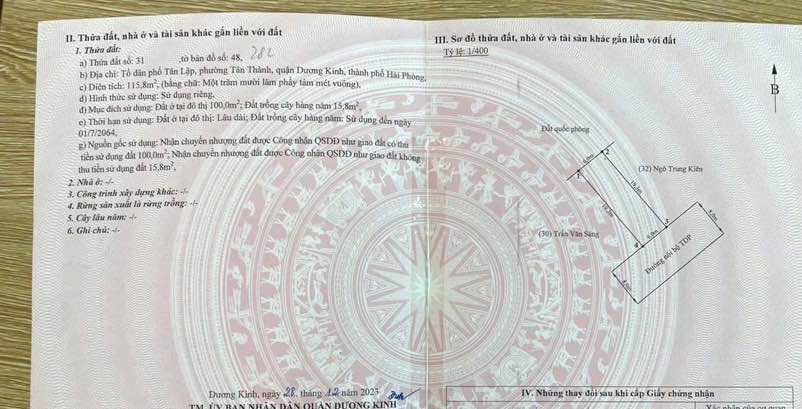 II. Thửa đất, nhà ở và tài sản khác gắn liền với đất
1. Thửa đất:
a) Thửa đất số: 31 ,tờ bản đồ số: 48, 282
b) Địa chỉ: Tổ dân phố Tân Lập, phường Tân Thành, quận Dương Kinh, thành phố Hải Phòng,
c) Diện tích: 115,8m², (bằng chữ: Một trăm mười lăm phẩy tám mét vuông),
d) Hình thức sử dụng: Sử dụng riêng,
đ) Mục đích sử dụng: Đất ở tại đô thị 100,0m²; Đất trồng cây hàng năm 15,8m²,
e) Thời hạn sử dụng: Đất ở tại đô thị: Lâu dài; Đất trồng cây hàng năm: Sử dụng đến ngày
01/7/2064,
g) Nguồn gốc sử dụng: Nhận chuyển nhượng đất được Công nhận QSDĐ như giao đất có thu
tiền sử dụng đất 100,0m²; Nhận chuyển nhượng đất được Công nhận QSDĐ như giao đất không
thu tiền sử dụng đất 15,8m²,
2. Nhà ở: -/-
3. Công trình xây dựng khác: -/-
4. Rừng sản xuất là rừng trồng: -/-
5. Cây lâu năm: -/-
6. Ghi chú: -/-
Dương Kinh, ngày 28, tháng 12 năm 2023
TM. ỦY BAN NHÂN DÂN QUẬN DƯƠNG KINH
III. Sơ đồ thửa đất, nhà ở và tài sản khác gắn liền với đất
Tỷ lệ: 1/400
B
Đất quốc phòng
1
2
(32) Ngô Trung Kiên
(30) Trần Văn Sáng
3
4
Đường nội bộ TDP
IV. Những thay đổi sau khi cấp Giấy chứng nhận
Xác nhận của cơ quan